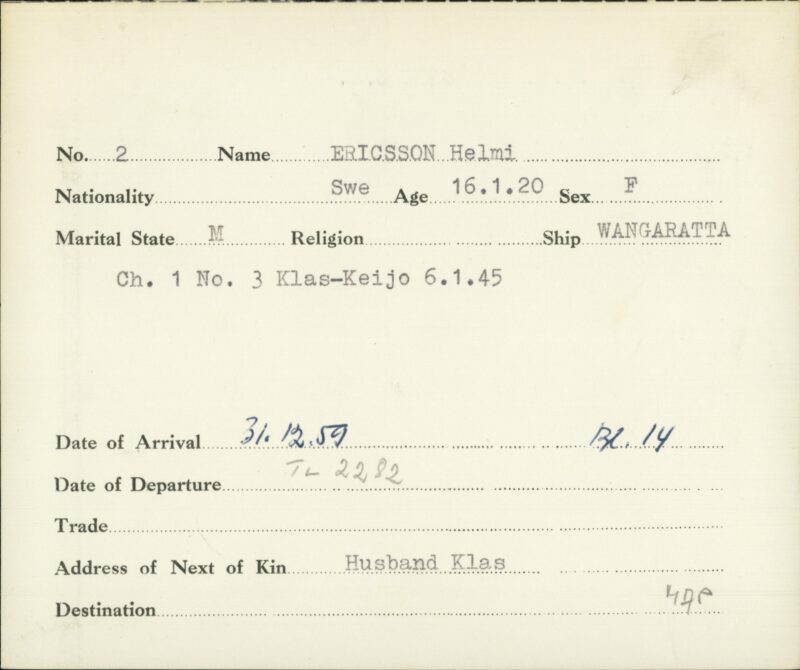 No. 2 Name ERICSSON Helmi
Nationality Swe Age 16.1.20 Sex F
Marital State M Religion Ship WANGARATTA
Ch. 1 No. 3 Klas-Keijo 6.1.45
Date of Arrival 31.12.59 Bl. 14
Date of Departure TL 2282
Trade
Address of Next of Kin Husband Klas
Destination